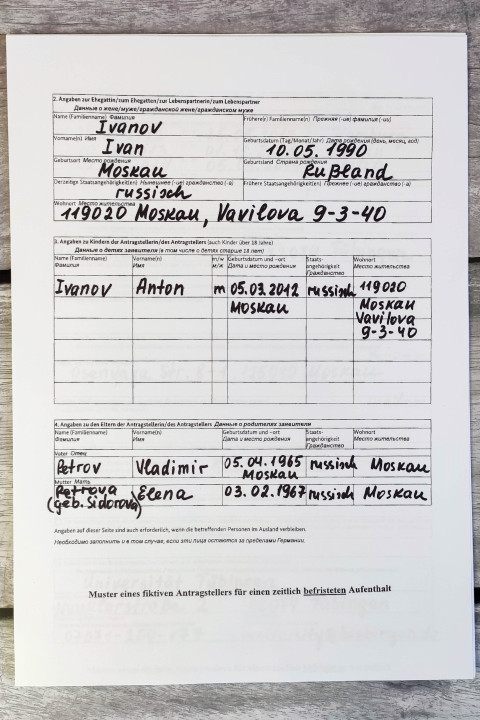 2. Angaben zur Ehegattin/zum Ehegatten/zur Lebenspartnerin/zum Lebenspartner
Данные о жене/муже/гражданской жене/гражданском муже
Name (Familienname) Фамилия
Ivanov
Frühere(r) Familienname(n) Прежняя (-ие) фамилия (-ии)
Vorname(n) Имя
Ivan
Geburtsdatum (Tag/Monat/Jahr) Дата рождения (день, месяц, год)
10.05.1990
Geburtsort Место рождения
Moskau
Geburtsland Страна рождения
Rußland
Derzeitige Staatsangehörigkeit(en) Нынешнее (-ие) гражданство (-а)
russisch
Frühere Staatsangehörigkeit(en) Прежнее (-ие) гражданство (-а)
Wohnort Место жительства
119020 Moskau, Vavilova 9-3-40
3. Angaben zu Kindern der Antragstellerin/des Antragstellers (auch Kinder über 18 Jahre)
Данные о детях заявителя (в том числе о детях старше 18 лет)
Name (Familienname)
Фамилия
Vorname(n)
Имя
m/w
м/ж
Geburtsdatum und –ort
Дата и место рождения
Staats-
angehörigkeit
Гражданство
Wohnort
Место жительства
Ivanov
Anton
m
05.03.2012
Moskau
russisch
119020
Moskau
Vavilova
9-3-40
4. Angaben zu den Eltern der Antragstellerin/des Antragstellers Данные о родителях заявителя
Name (Familienname)
Фамилия
Vorname(n)
Имя
Geburtsdatum und –ort
Дата и место рождения
Staats-
angehörigkeit
Гражданство
Wohnort
Место жительства
Vater Отец
Petrov
Vladimir
05.04.1965
Moskau
russisch
Moskau
Mutter Мать
Petrova
(geb. Sidorova)
Elena
03.02.1967
russisch
Moskau
Angaben auf dieser Seite sind auch erforderlich, wenn die betreffenden Personen im Ausland verbleiben.
Необходимо заполнить и в том случае, если эти лица остаются за пределами Германии.
Muster eines fiktiven Antragstellers für einen zeitlich befristeten Aufenthalt